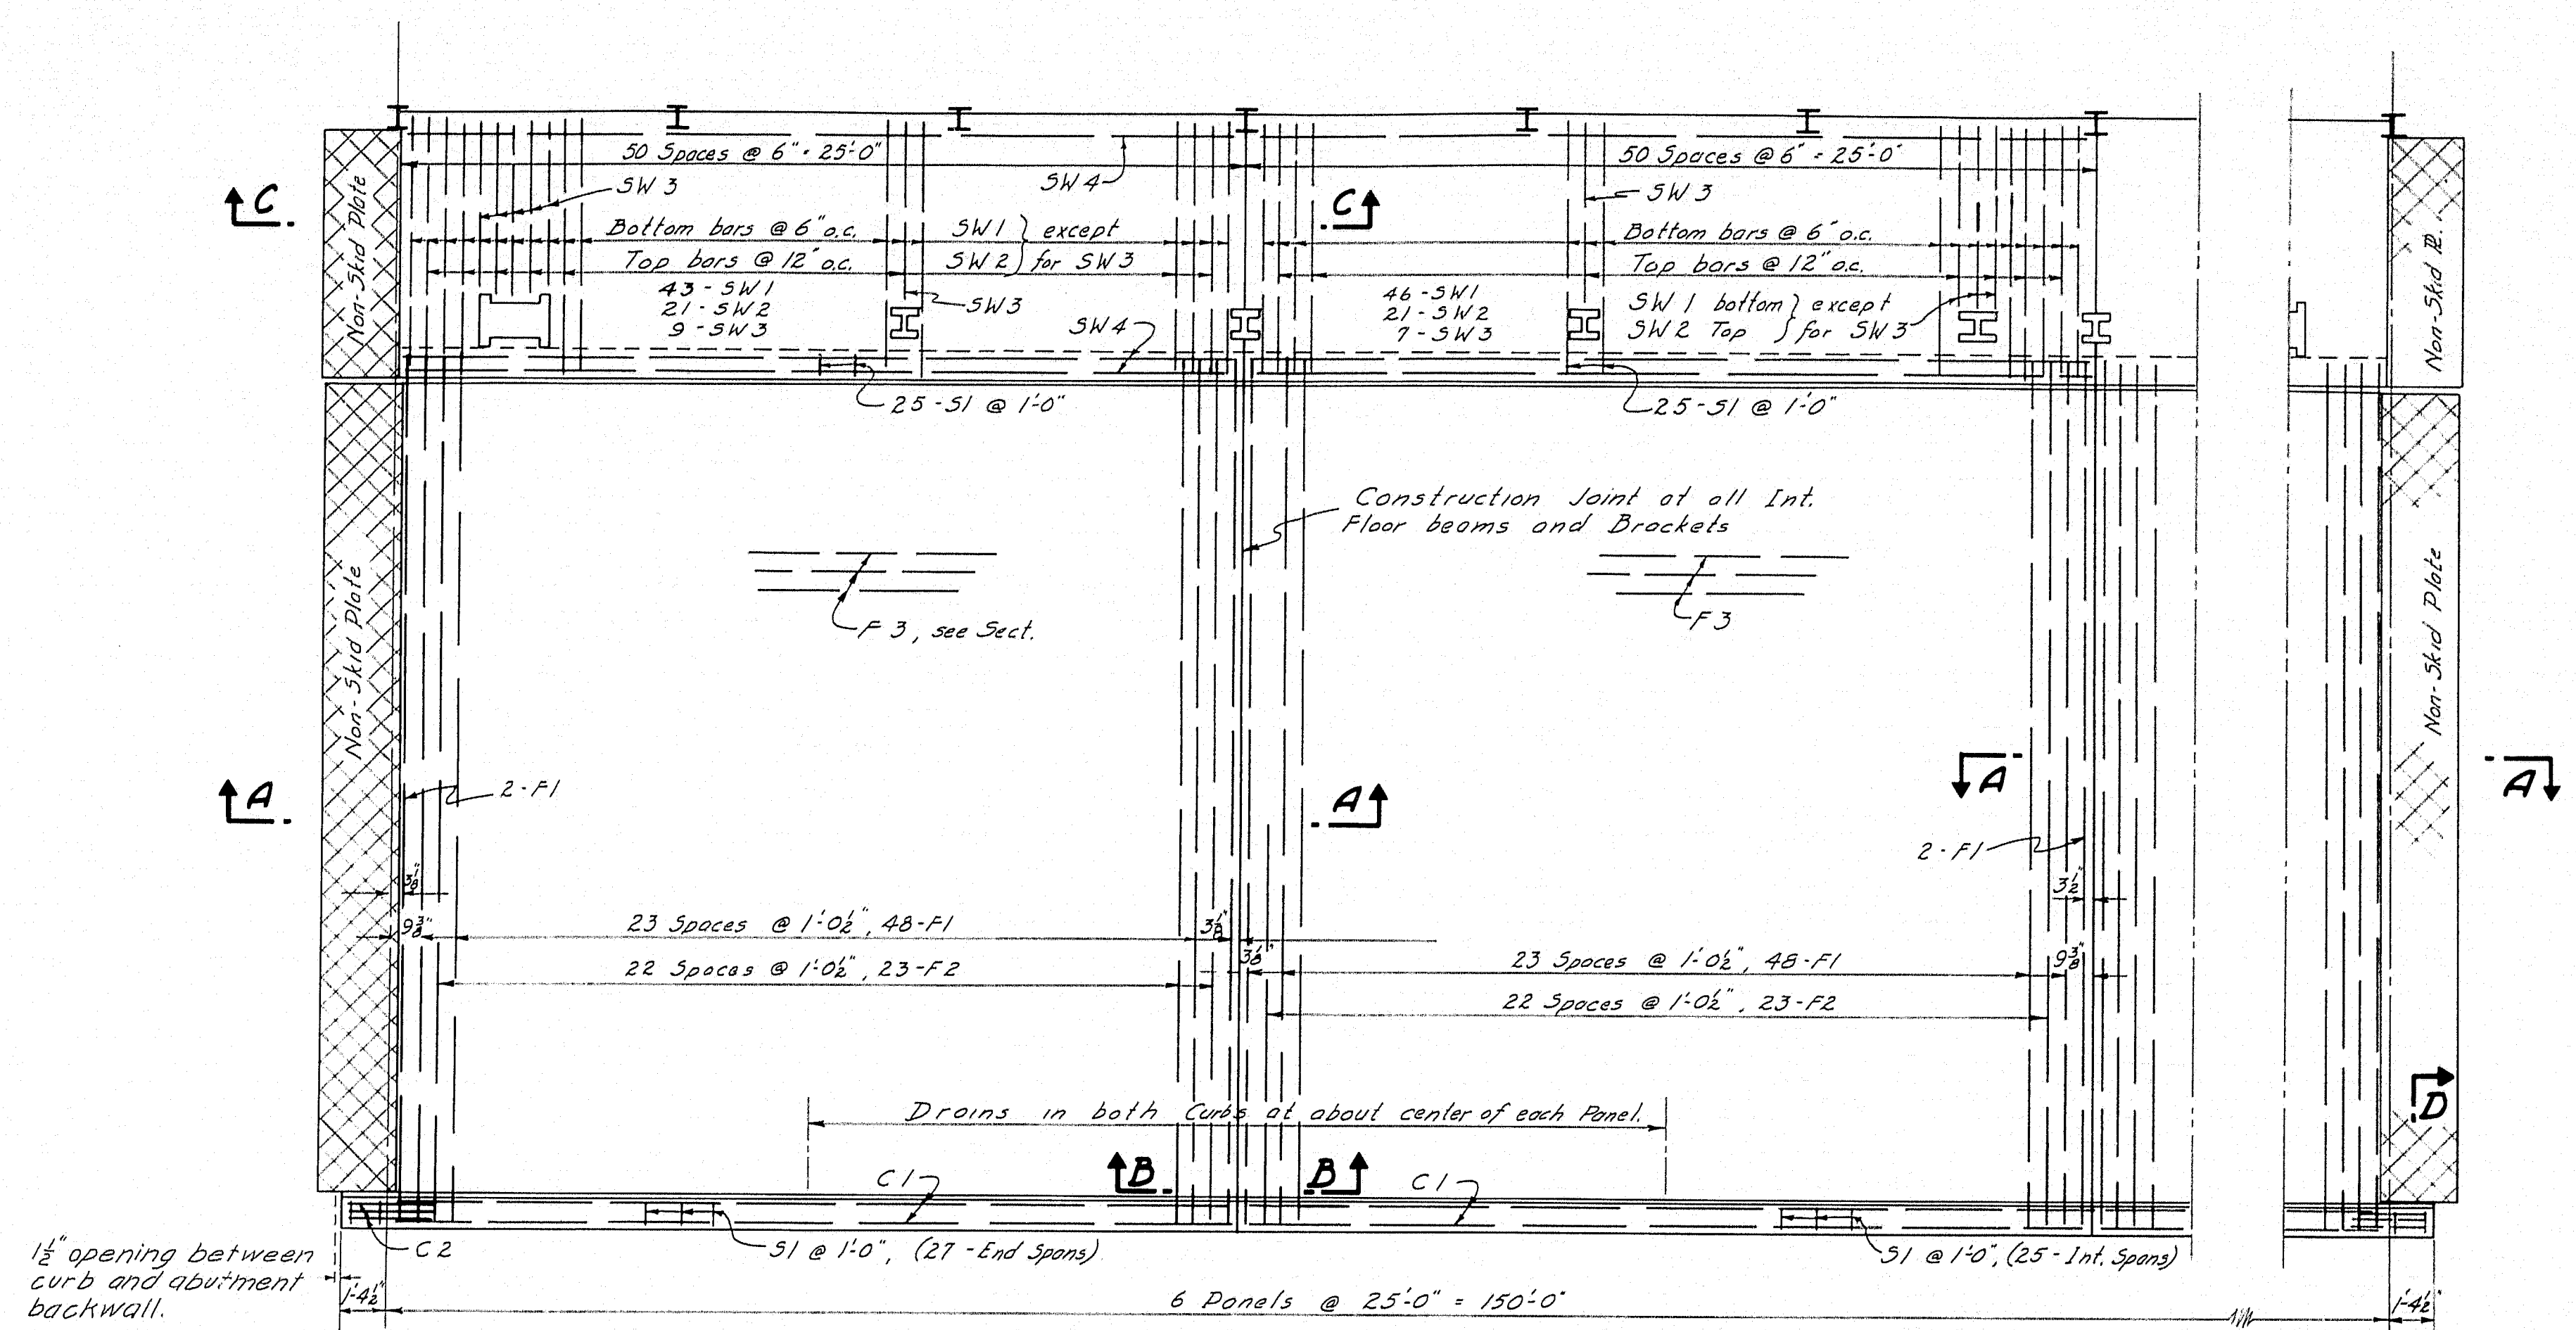 50 Spaces @ 6" = 25'-0"
50 Spaces @ 6" = 25'-0"
SW 3
SW4
SW 3
C
C
Non-Skid Plate
Non-Skid PL.
Bottom bars @ 6" o.c.
SW1 } except
Bottom bars @ 6" o.c.
Top bars @ 12" o.c.
SW2 } for SW3
Top bars @ 12" o.c.
43 - SW1
21 - SW2
9 - SW3
SW3
SW4
46 - SW1
21 - SW2
7 - SW3
SW 1 bottom } except
SW 2 Top } for SW3
25-S1 @ 1'-0"
25-S1 @ 1'-0"
Construction Joint at all Int.
Floor beams and Brackets
F 3, see Sect.
F3
Non-Skid Plate
Non-Skid Plate
A
2-F1
A
A
A
2-F1
3 1/8"
3 1/2"
9 3/8"
23 Spaces @ 1'-0 1/2", 48-F1
3 1/8"
3 1/8"
23 Spaces @ 1'-0 1/2", 48-F1
9 3/8"
22 Spaces @ 1'-0 1/2", 23-F2
22 Spaces @ 1'-0 1/2", 23-F2
Drains in both Curbs at about center of each Panel.
D
B
B
C1
C1
C2
S1 @ 1'-0", (27 - End Spans)
S1 @ 1'-0", (25 - Int. Spans)
1 1/2" opening between
curb and abutment
backwall.
1'-4 1/2"
6 Panels @ 25'-0" = 150'-0"
1'-4 1/2"